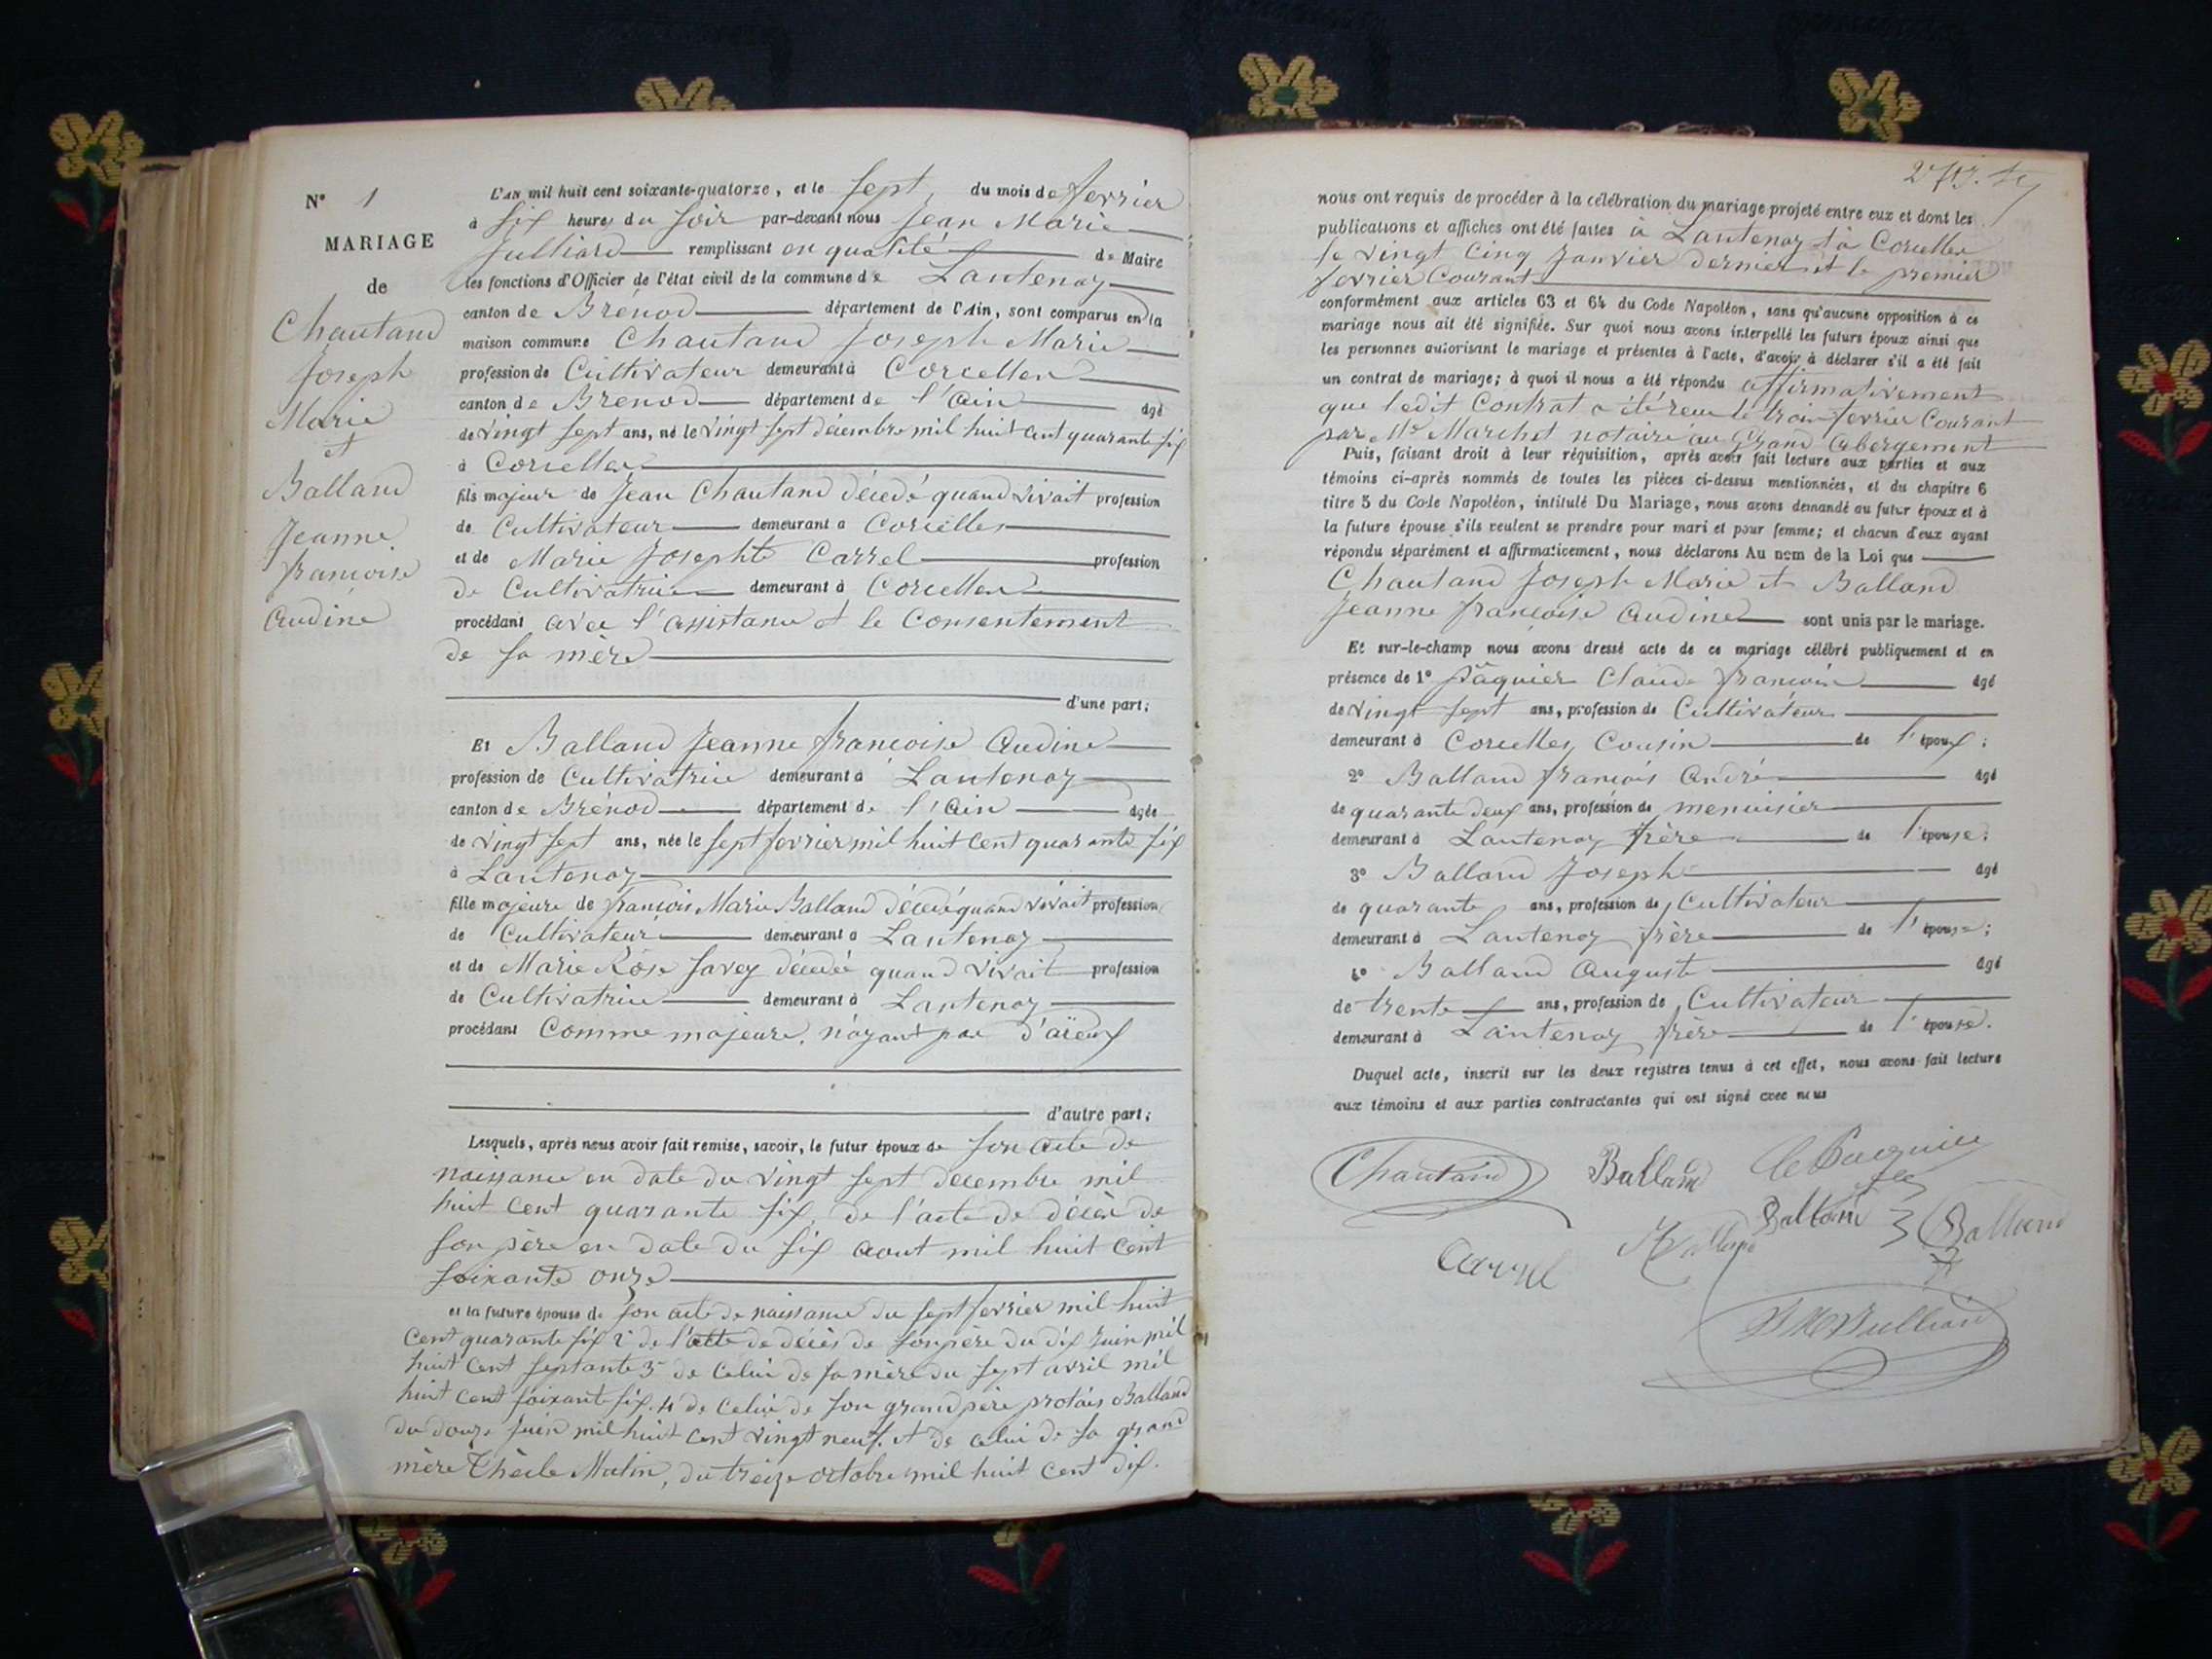 N° 1
MARIAGE
de
Chautand
Joseph
Marie
et
Balland
Jeanne
françoise
Audine
L'AN mil huit cent soixante-quatorze, et le sept, du mois de février
à six heures du soir par-devant nous Jean Marie
Julliard remplissant en qualité de Maire
les fonctions d'Officier de l'état civil de la commune de Lantenay
canton de Brénod département de l'Ain, sont comparus en la
maison commune Chautand Joseph Marie
profession de Cultivateur demeurant à Corcelles
canton de Brénod département de l'Ain âgé
de vingt sept ans, né le vingt sept décembre mil huit cent quarante six
à Corcelles
fils majeur de Jean Chautand décédé quand vivait profession
de Cultivateur demeurant à Corcelles
et de Marie Josephte Carrel profession
de Cultivatrice demeurant à Corcelles
procédant avec l'assistance et le Consentement
de sa mère
d'une part;
Et Balland Jeanne françoise Audine
profession de Cultivatrice demeurant à Lantenay
canton de Brénod département de l'Ain âgée
de vingt sept ans, née le sept fevrier mil huit Cent quarante six
à Lantenay
fille majeure de françois Marie Balland décédé quand vivait profession
de Cultivateur demeurant à Lantenay
et de Marie Rose Savey décédée quand vivait profession
de Cultivatrice demeurant à Lantenay
procédant Comme majeure, n'ayant pas d'aïeux
d'autre part;
Lesquels, après nous avoir fait remise, savoir, le futur époux de son acte de
naissance en date du vingt sept decembre mil
huit cent quarante six, de l'acte de décès de
son père en date du six aout mil huit cent
soixante onze
et la future épouse de son acte de naissance du sept fevrier mil huit
cent quarante six 2° de l'acte de décès de son père du dix juin mil
huit cent septante 3° de Celui de sa mère du sept avril mil
huit cent soixante six. 4° de Celui de son grand père protais Balland
du douze juin mil huit cent vingt neuf. et de celui de sa grand
mère Thècle Mutin, du treize octobre mil huit cent dix.
nous ont requis de procéder à la célébration du mariage projeté entre eux et dont les
publications et affiches ont été faites à Lantenay & à Corcelles
le vingt cinq Janvier dernier et le premier
fevrier Courant
conformément aux articles 63 et 64 du Code Napoléon, sans qu'aucune opposition à ce
mariage nous ait été signifiée. Sur quoi nous avons interpellé les futurs époux ainsi que
les personnes autorisant le mariage et présentes à l'acte, d'avoir à déclarer s'il a été fait
un contrat de mariage; à quoi il nous a été répondu affirmativement
que ledit Contrat a été reçu le trois fevrier Courant
par Me Marchet notaire au Grand Abergement
Puis, faisant droit à leur réquisition, après avoir fait lecture aux parties et aux
témoins ci-après nommés de toutes les pièces ci-dessus mentionnées, et du chapitre 6
titre 5 du Code Napoléon, intitulé Du Mariage, nous avons demandé au futur époux et à
la future épouse s'ils veulent se prendre pour mari et pour femme; et chacun d'eux ayant
répondu séparément et affirmativement, nous déclarons Au nom de la Loi que
Chautand Joseph Marie et Balland
Jeanne françoise Audine sont unis par le mariage.
Et sur-le-champ nous avons dressé acte de ce mariage célébré publiquement et en
présence de 1° Paquier Claude françois âgé
de vingt sept ans, profession de Cultivateur
demeurant à Corcelles, Cousin de l'époux;
2° Balland françois André âgé
de quarante deux ans, profession de menuisier
demeurant à Lantenay frère de l'épouse;
3° Balland Joseph âgé
de quarante ans, profession de Cultivateur
demeurant à Lantenay frère de l'épouse;
4° Balland Auguste âgé
de trente ans, profession de Cultivateur
demeurant à Lantenay frère de l'épouse.
Duquel acte, inscrit sur les deux registres tenus à cet effet, nous avons fait lecture
aux témoins et aux parties contractantes qui ont signé avec nous
Chautand Balland
Balland Balland
Carrel
JM Julliard